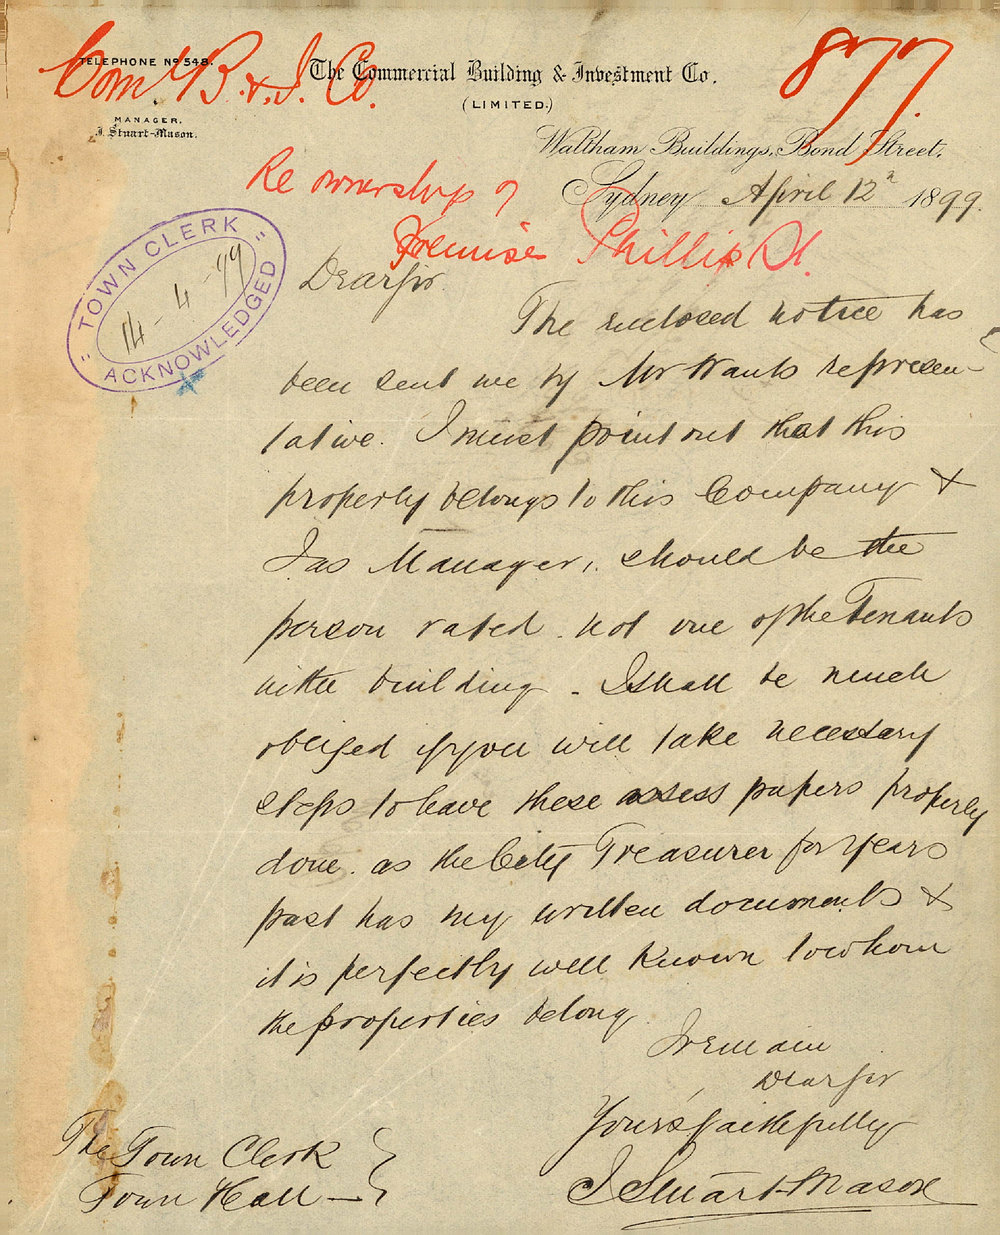 TELEPHONE Nº 548.
Coml. B. & I. Co.
The Commercial Building & Investment Co.
(LIMITED.)
877.
MANAGER,
J. Stuart-Mason.
Waltham Buildings, Bond Street,
Sydney April 12th 1899.
Re ownership of
Premises Phillip St.
"TOWN CLERK"
14-4-99
ACKNOWLEDGED
Dear Sir
The enclosed notice has
been sent me by Mr Wants represen-
tative. I must point out that this
property belongs to this Company &
I as Manager, should be the
person rated. not one of the Tenants
in the building - I shall be much
obliged if you will take necessary
steps to have these assess papers properly
done. as the City Treasurer for years
past has my written documents &
it is perfectly well known to whom
the properties belong.
I remain
Dear Sir
Yours faithfully
J Stuart-Mason
The Town Clerk
Town Hall —